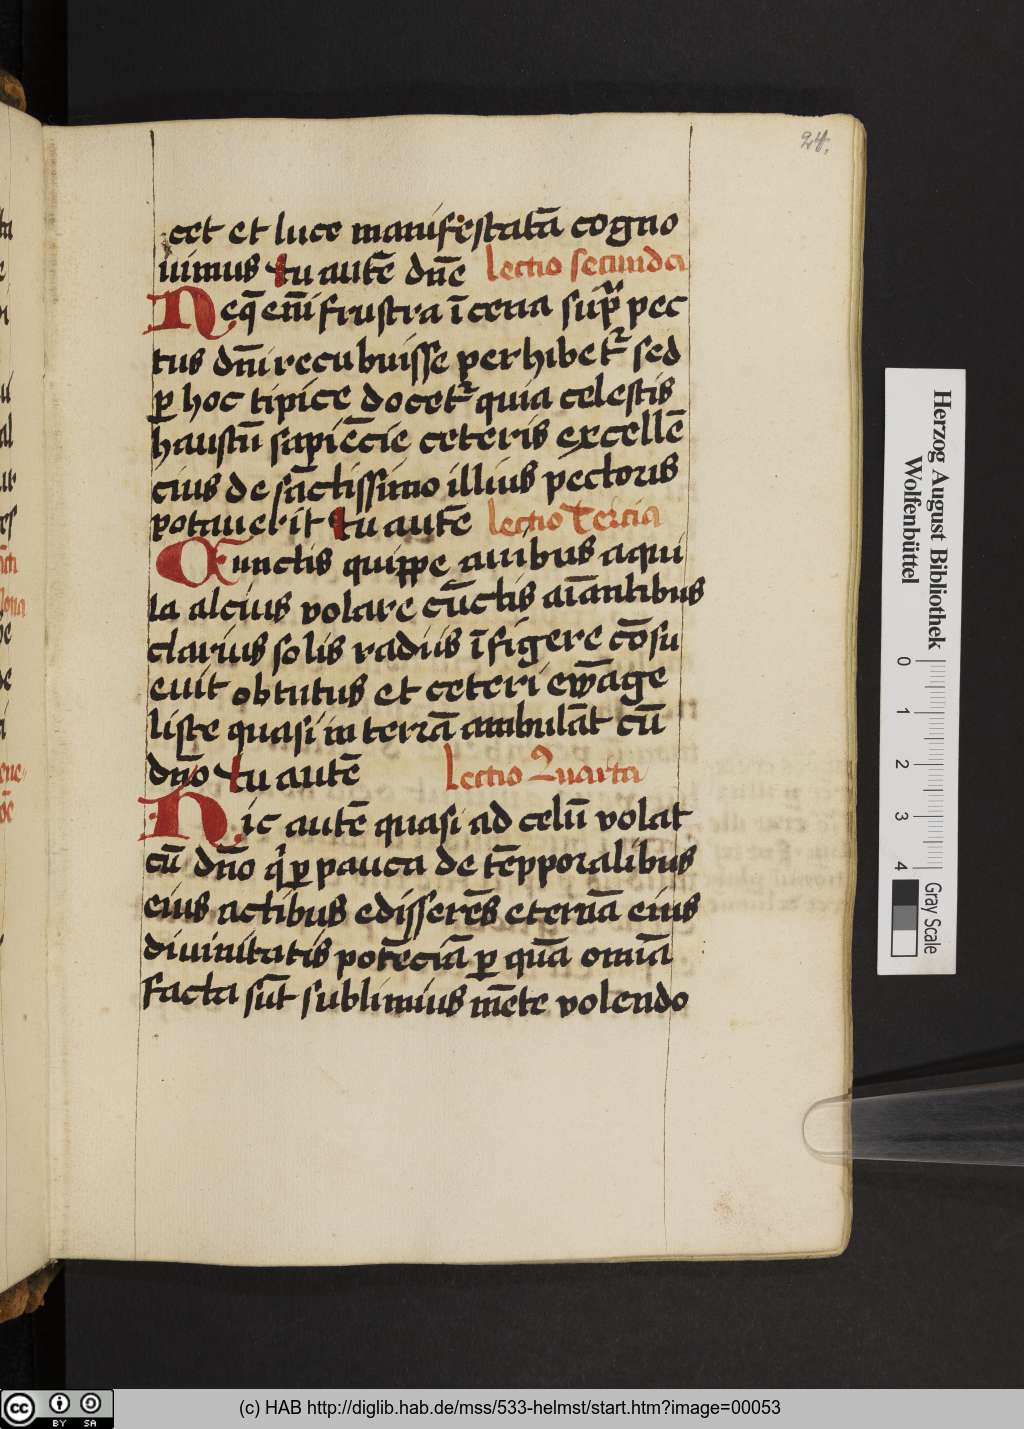 24.
cet et luce manifestatā cogno
uimus tu autē dn̄e lectio secunda
Neq̄ eni̅ frustra ī cena sup̄ pec
tus dn̄i recubuisse perhibetᷣ sed
ꝑ hoc tipice docetᷣ quia celestis
haustū sapiēcie ceteris excellē
cius de sāctissimo illius pectoris
potauerit tu autē lectio Tercia
Cunctis quippe auibus aqui
la alcius volare cūctis aīantibus
clarius solis radiis īfigere cōsu
euit obtutus et ceteri ewāge
liste quasi in terrā ambulāt cū
dn̄o tu autē lectio Quarta
Hic autē quasi ad celū volat
cū dn̄o q̇ ꝑ pauca de tēpporalibus
eius actibus edisserēs eternā eius
diuinitatis potēciā ꝑ quā omīa
facta sūt sublimius mēte volendo
Herzog August Bibliothek
Wolfenbüttel
0 1 2 3 4
Gray Scale
cc BY SA
(c) HAB http://diglib.hab.de/mss/533-helmst/start.htm?image=00053